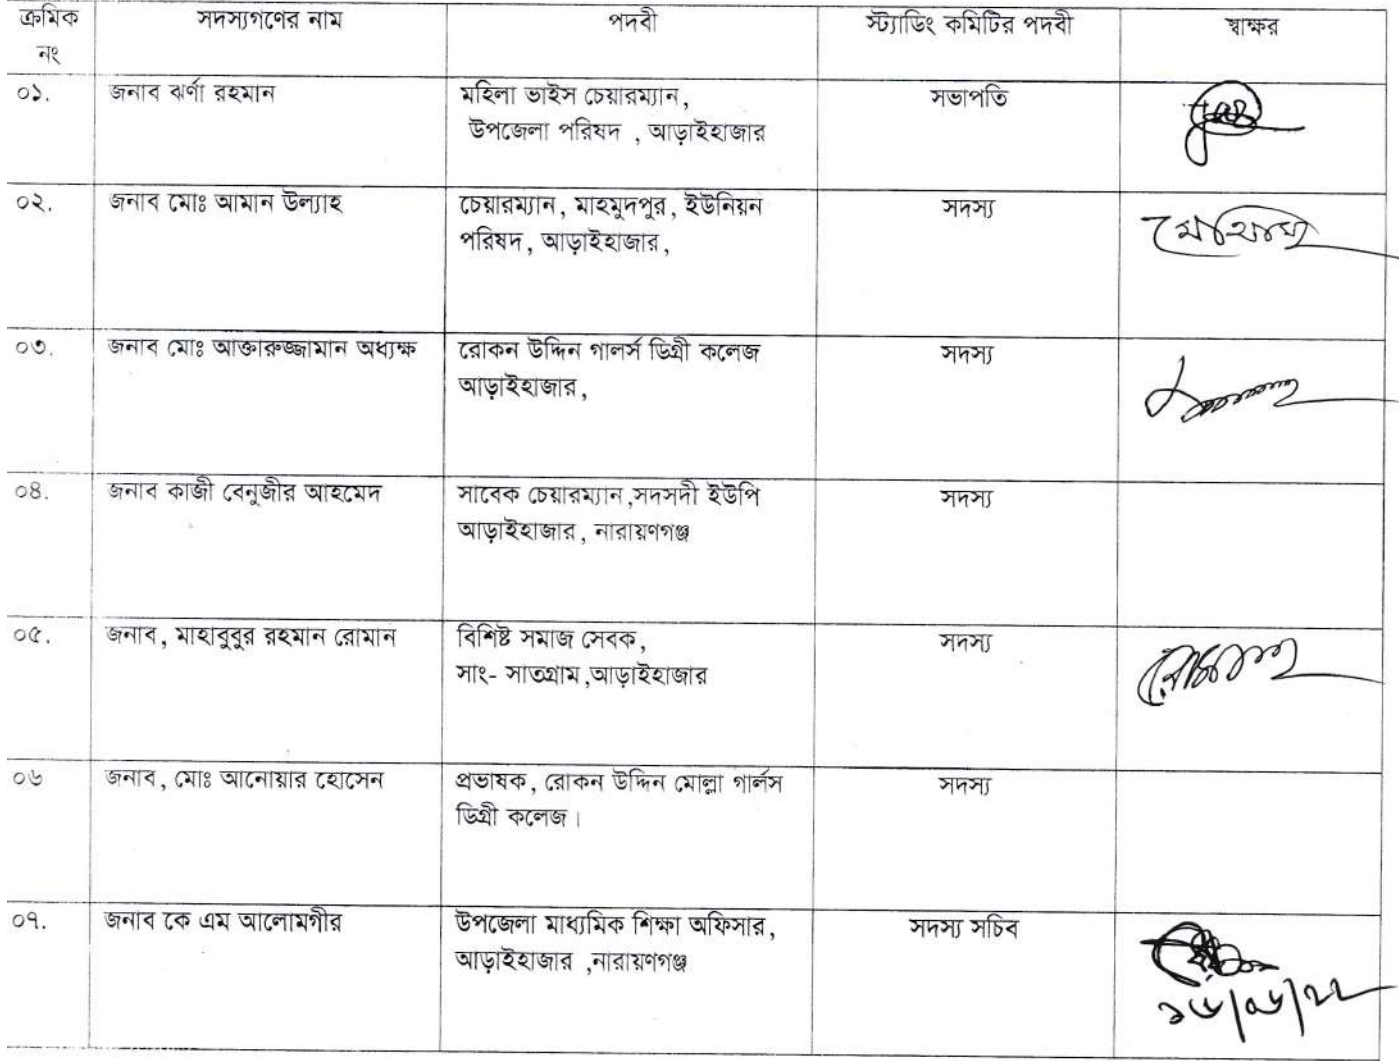 ক্রমিক নং | সদস্যগণের নাম | পদবী | স্ট্যাডিং কমিটির পদবী | স্বাক্ষর
০১. | জনাব ঝর্ণা রহমান | মহিলা ভাইস চেয়ারম্যান, | সভাপতি
উপজেলা পরিষদ , আড়াইহাজার
০২. | জনাব মোঃ আমান উল্যাহ | চেয়ারম্যান, মাহমুদপুর, ইউনিয়ন | সদস্য
পরিষদ, আড়াইহাজার,
০৩. | জনাব মোঃ আক্তারুজ্জামান অধ্যক্ষ | রোকন উদ্দিন গালর্স ডিগ্রী কলেজ | সদস্য
আড়াইহাজার,
০৪. | জনাব কাজী বেনুজীর আহমেদ | সাবেক চেয়ারম্যান,সদসদী ইউপি | সদস্য
আড়াইহাজার, নারায়ণগঞ্জ
০৫. | জনাব, মাহাবুবুর রহমান রোমান | বিশিষ্ট সমাজ সেবক, | সদস্য
সাং- সাতগ্রাম,আড়াইহাজার
০৬ | জনাব, মোঃ আনোয়ার হোসেন | প্রভাষক, রোকন উদ্দিন মোল্লা গার্লস | সদস্য
ডিগ্রী কলেজ।
০৭. | জনাব কে এম আলোমগীর | উপজেলা মাধ্যমিক শিক্ষা অফিসার, | সদস্য সচিব
আড়াইহাজার ,নারায়ণগঞ্জ
১৬/০৬/২২